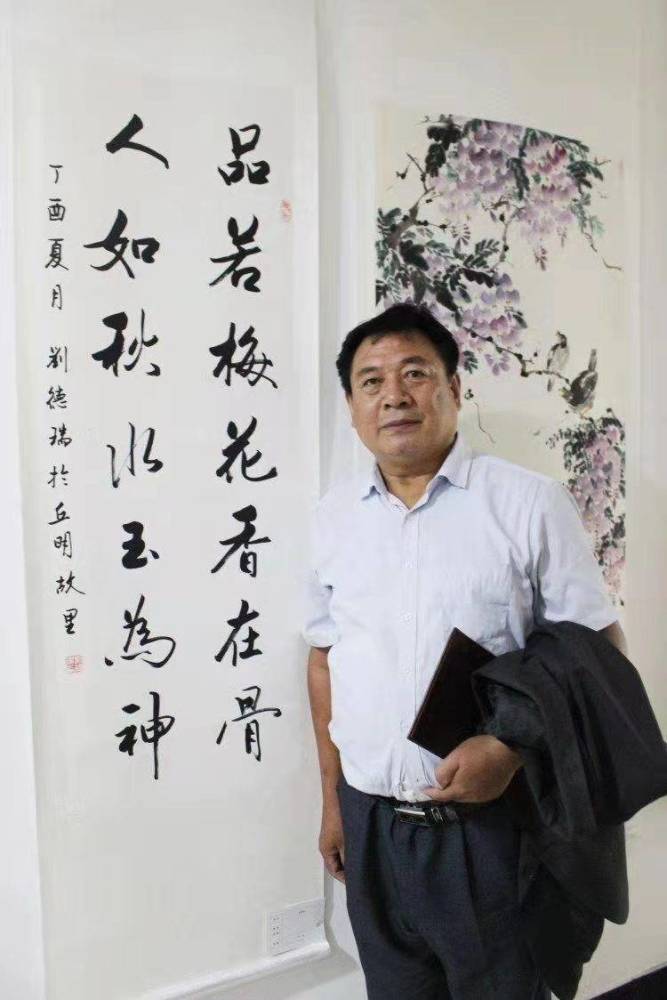 品若梅花香在骨
人如秋水玉為神
丁酉夏月 劉德瑞於丘明故里